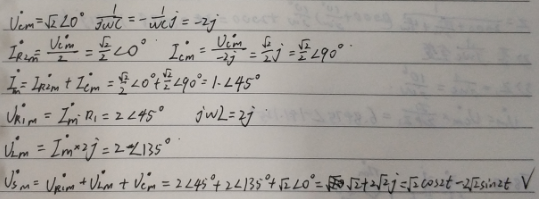 U̇cm=√2∠0° 1/jωC=-1/ωC j=-2j
İR2m=U̇cm/2=√2/2∠0° İcm=U̇cm/-2j=√2/2j=√2/2∠90°
İm=İR2m+İcm=√2/2∠0°+√2/2∠90°=1∠45°
U̇R1m=İm·R1=2∠45° jωL=2j
U̇Lm=İm*2j=2∠135°
U̇sm=U̇R1m+U̇Lm+U̇cm=2∠45°+2∠135°+√2∠0°=√2+2√2j=√2cos2t-2√2sin2t V